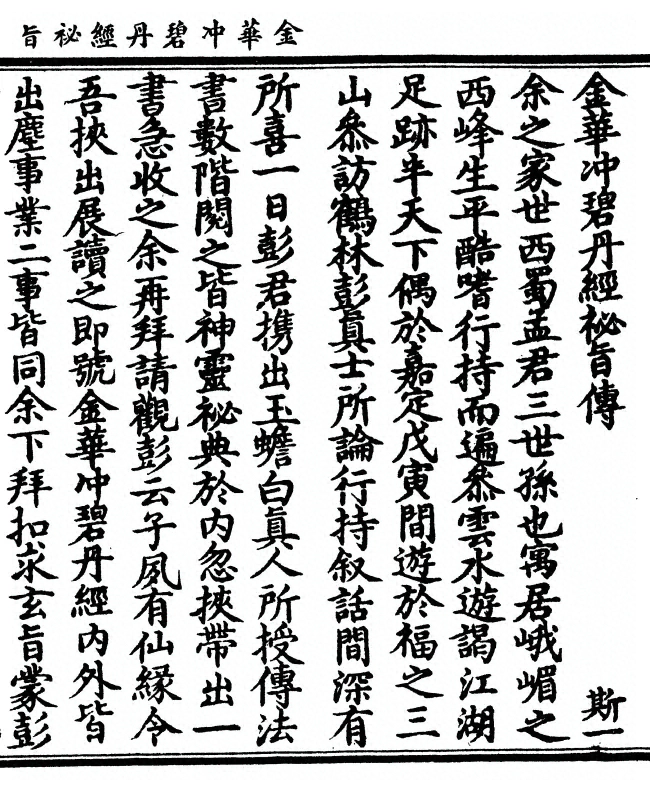 金華冲碧丹經祕旨
金華冲碧丹經祕旨傳
斯一
余之家世西蜀孟君三世孫也寓居峨嵋之
西峰生平酷嗜行持而遍叅雲水遊謁江湖
足跡半天下偶於嘉定戊寅間遊於福之三
山叅訪鶴林彭眞士所論行持叙話間深有
所喜一日彭君携出玉蟾白眞人所授傳法
書數階閱之皆神靈祕典於内忽挾帶出一
書急收之余再拜請觀彭云子夙有仙緣令
吾挾出展讀之即號金華冲碧丹經内外皆
出塵事業二事皆同余下拜扣求玄旨蒙彭